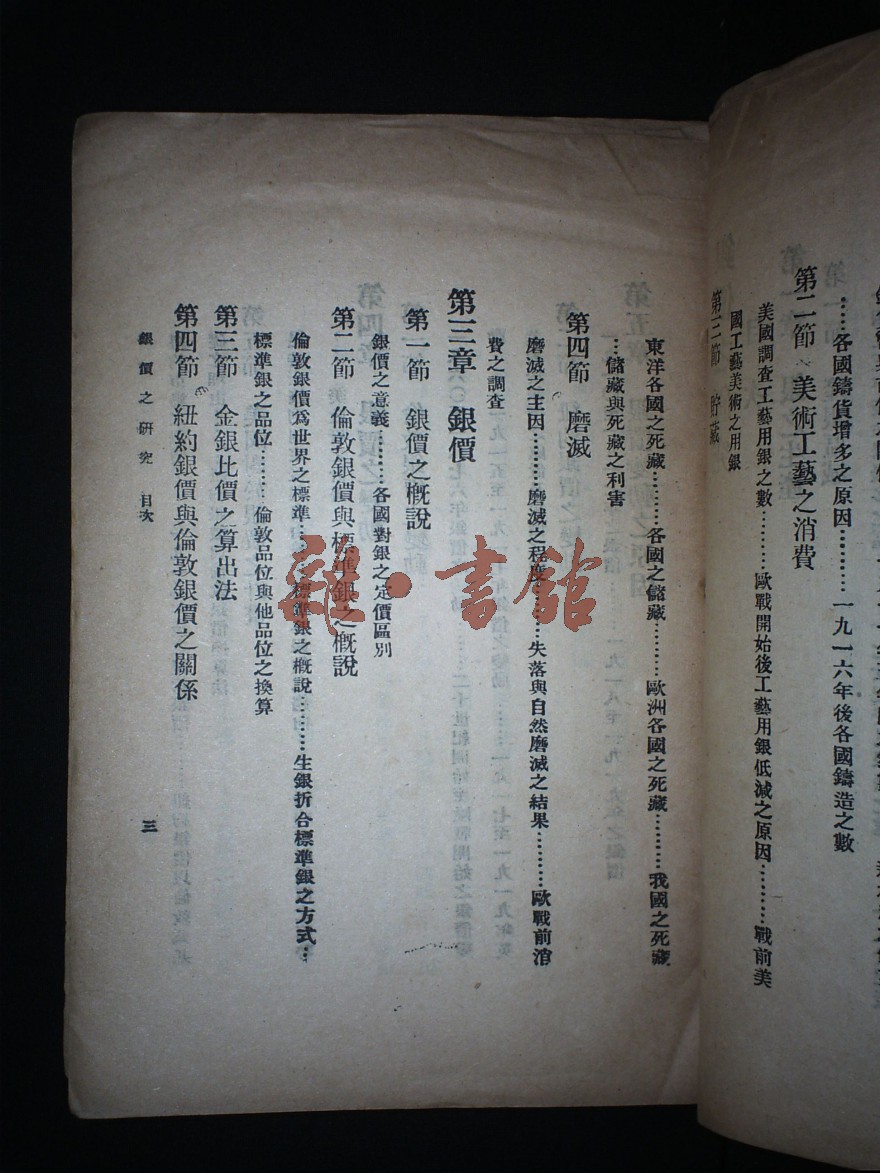 ……各國鑄貨增多之原因………一九一六年後各國鑄造之數
第二節 美術工藝之消費
美國調查工藝用銀之數………歐戰開始後工藝用銀低減之原因………戰前美
國工藝美術之用銀
第三節 貯藏
東洋各國之死藏………各國之儲藏………歐洲各國之死藏………我國之死藏
…儲藏與死藏之利害
第四節 磨滅
磨滅之主因………磨滅之程度………失落與自然磨滅之結果………歐戰前消
費之調查
第三章 銀價
第一節 銀價之概說
銀價之意義………各國對銀之定價區別
第二節 倫敦銀價與標準銀之概說
倫敦銀價爲世界之標準………標準銀之概說………生銀折合標準銀之方式…
標準銀之品位………倫敦品位與他品位之換算
第三節 金銀比價之算出法
第四節 紐約銀價與倫敦銀價之關係
銀價之研究 目次
三
雜·書館